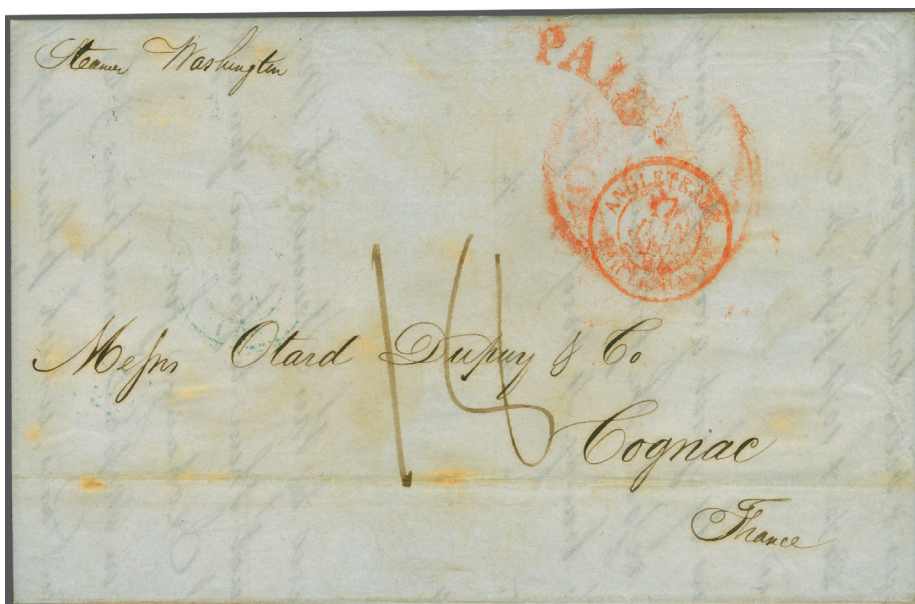 Steamer Washington
PAID
ANGLETERRE
14
Messrs Otard Dupuy & Co
Cognac
France